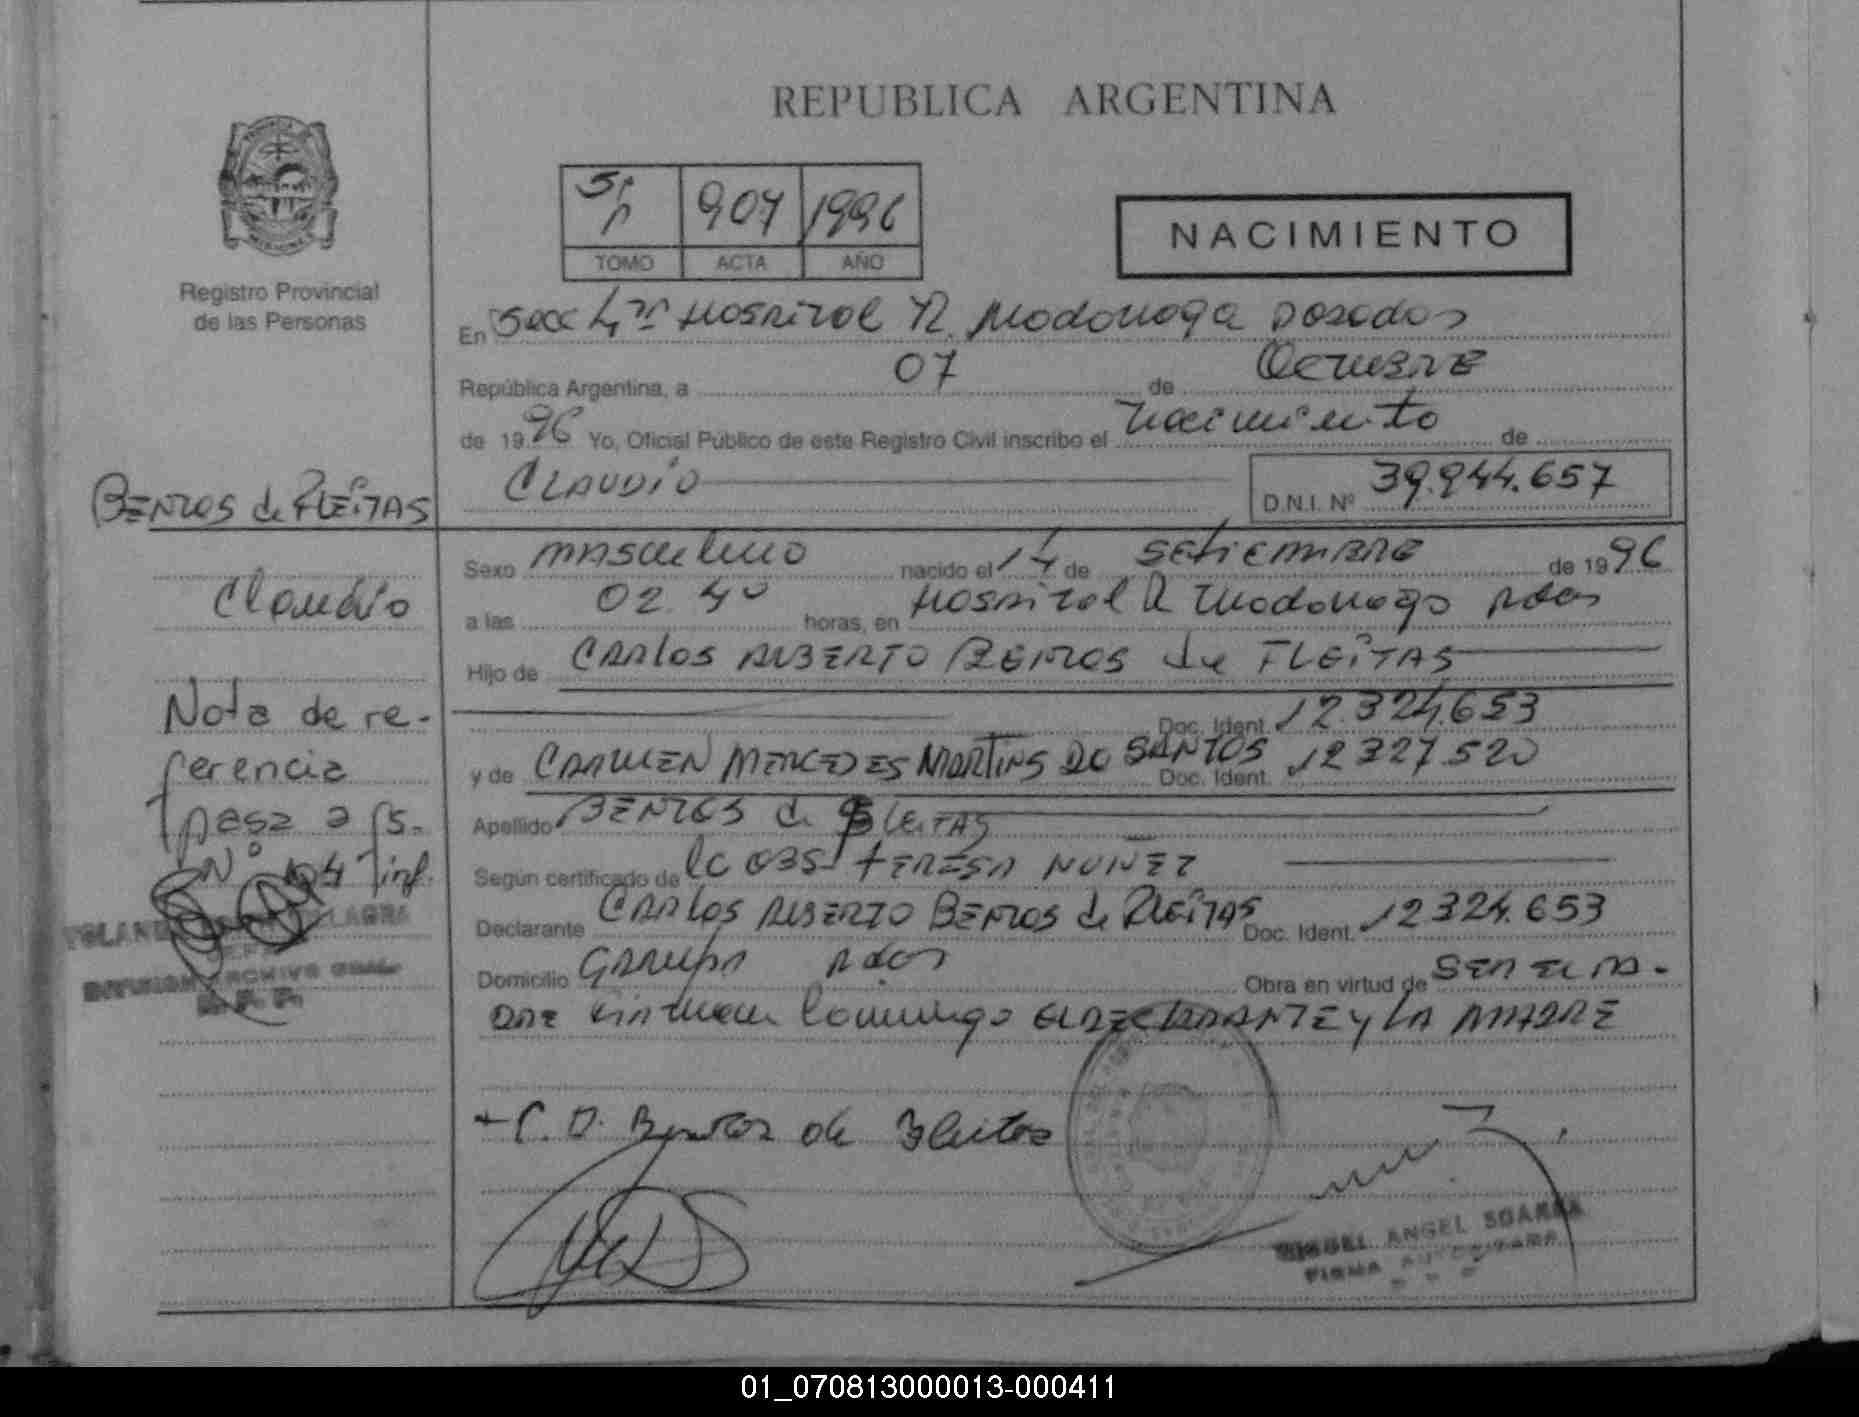 REPUBLICA ARGENTINA
907 1996
TOMO ACTA AÑO
NACIMIENTO
Registro Provincial
de las Personas
En Secc Hospital R. Madariaga Posadas
República Argentina, a 07 de Octubre
de 1996 Yo, Oficial Público de este Registro Civil inscribo el nacimiento de
CLAUDIO D.N.I. Nº 39.944.657
BENTOS de FLEITAS
Claudio
Sexo masculino nacido el 14 de SETIEMBRE de 1996
a las 02.40 horas, en Hospital R Madariaga Pdas
Hijo de CARLOS ALBERTO BENTOS de FLEITAS
Doc. Ident. 12.324.653
y de CARMEN MERCEDES MARTINS DO SANTOS Doc. Ident. 12327.520
Apellido BENTOS de FLEITAS
Según certificado de la OBST TERESA NUÑEZ
Declarante CARLOS ALBERTO BENTOS de FLEITAS Doc. Ident. 12324.653
Domicilio GARUPA Pdas Obra en virtud de SER EL PA-
DRE firman conmigo el DECLARANTE y LA MADRE
Nota de re-
ferencia
pasa a fs.
Nº 104 inf.
DIVISION ARCHIVO GRAL.
R. P. P.
Bentos de Fleitas
MIGUEL ANGEL SOAREA
FIRMA AUTORIZADA
01_070813000013-000411